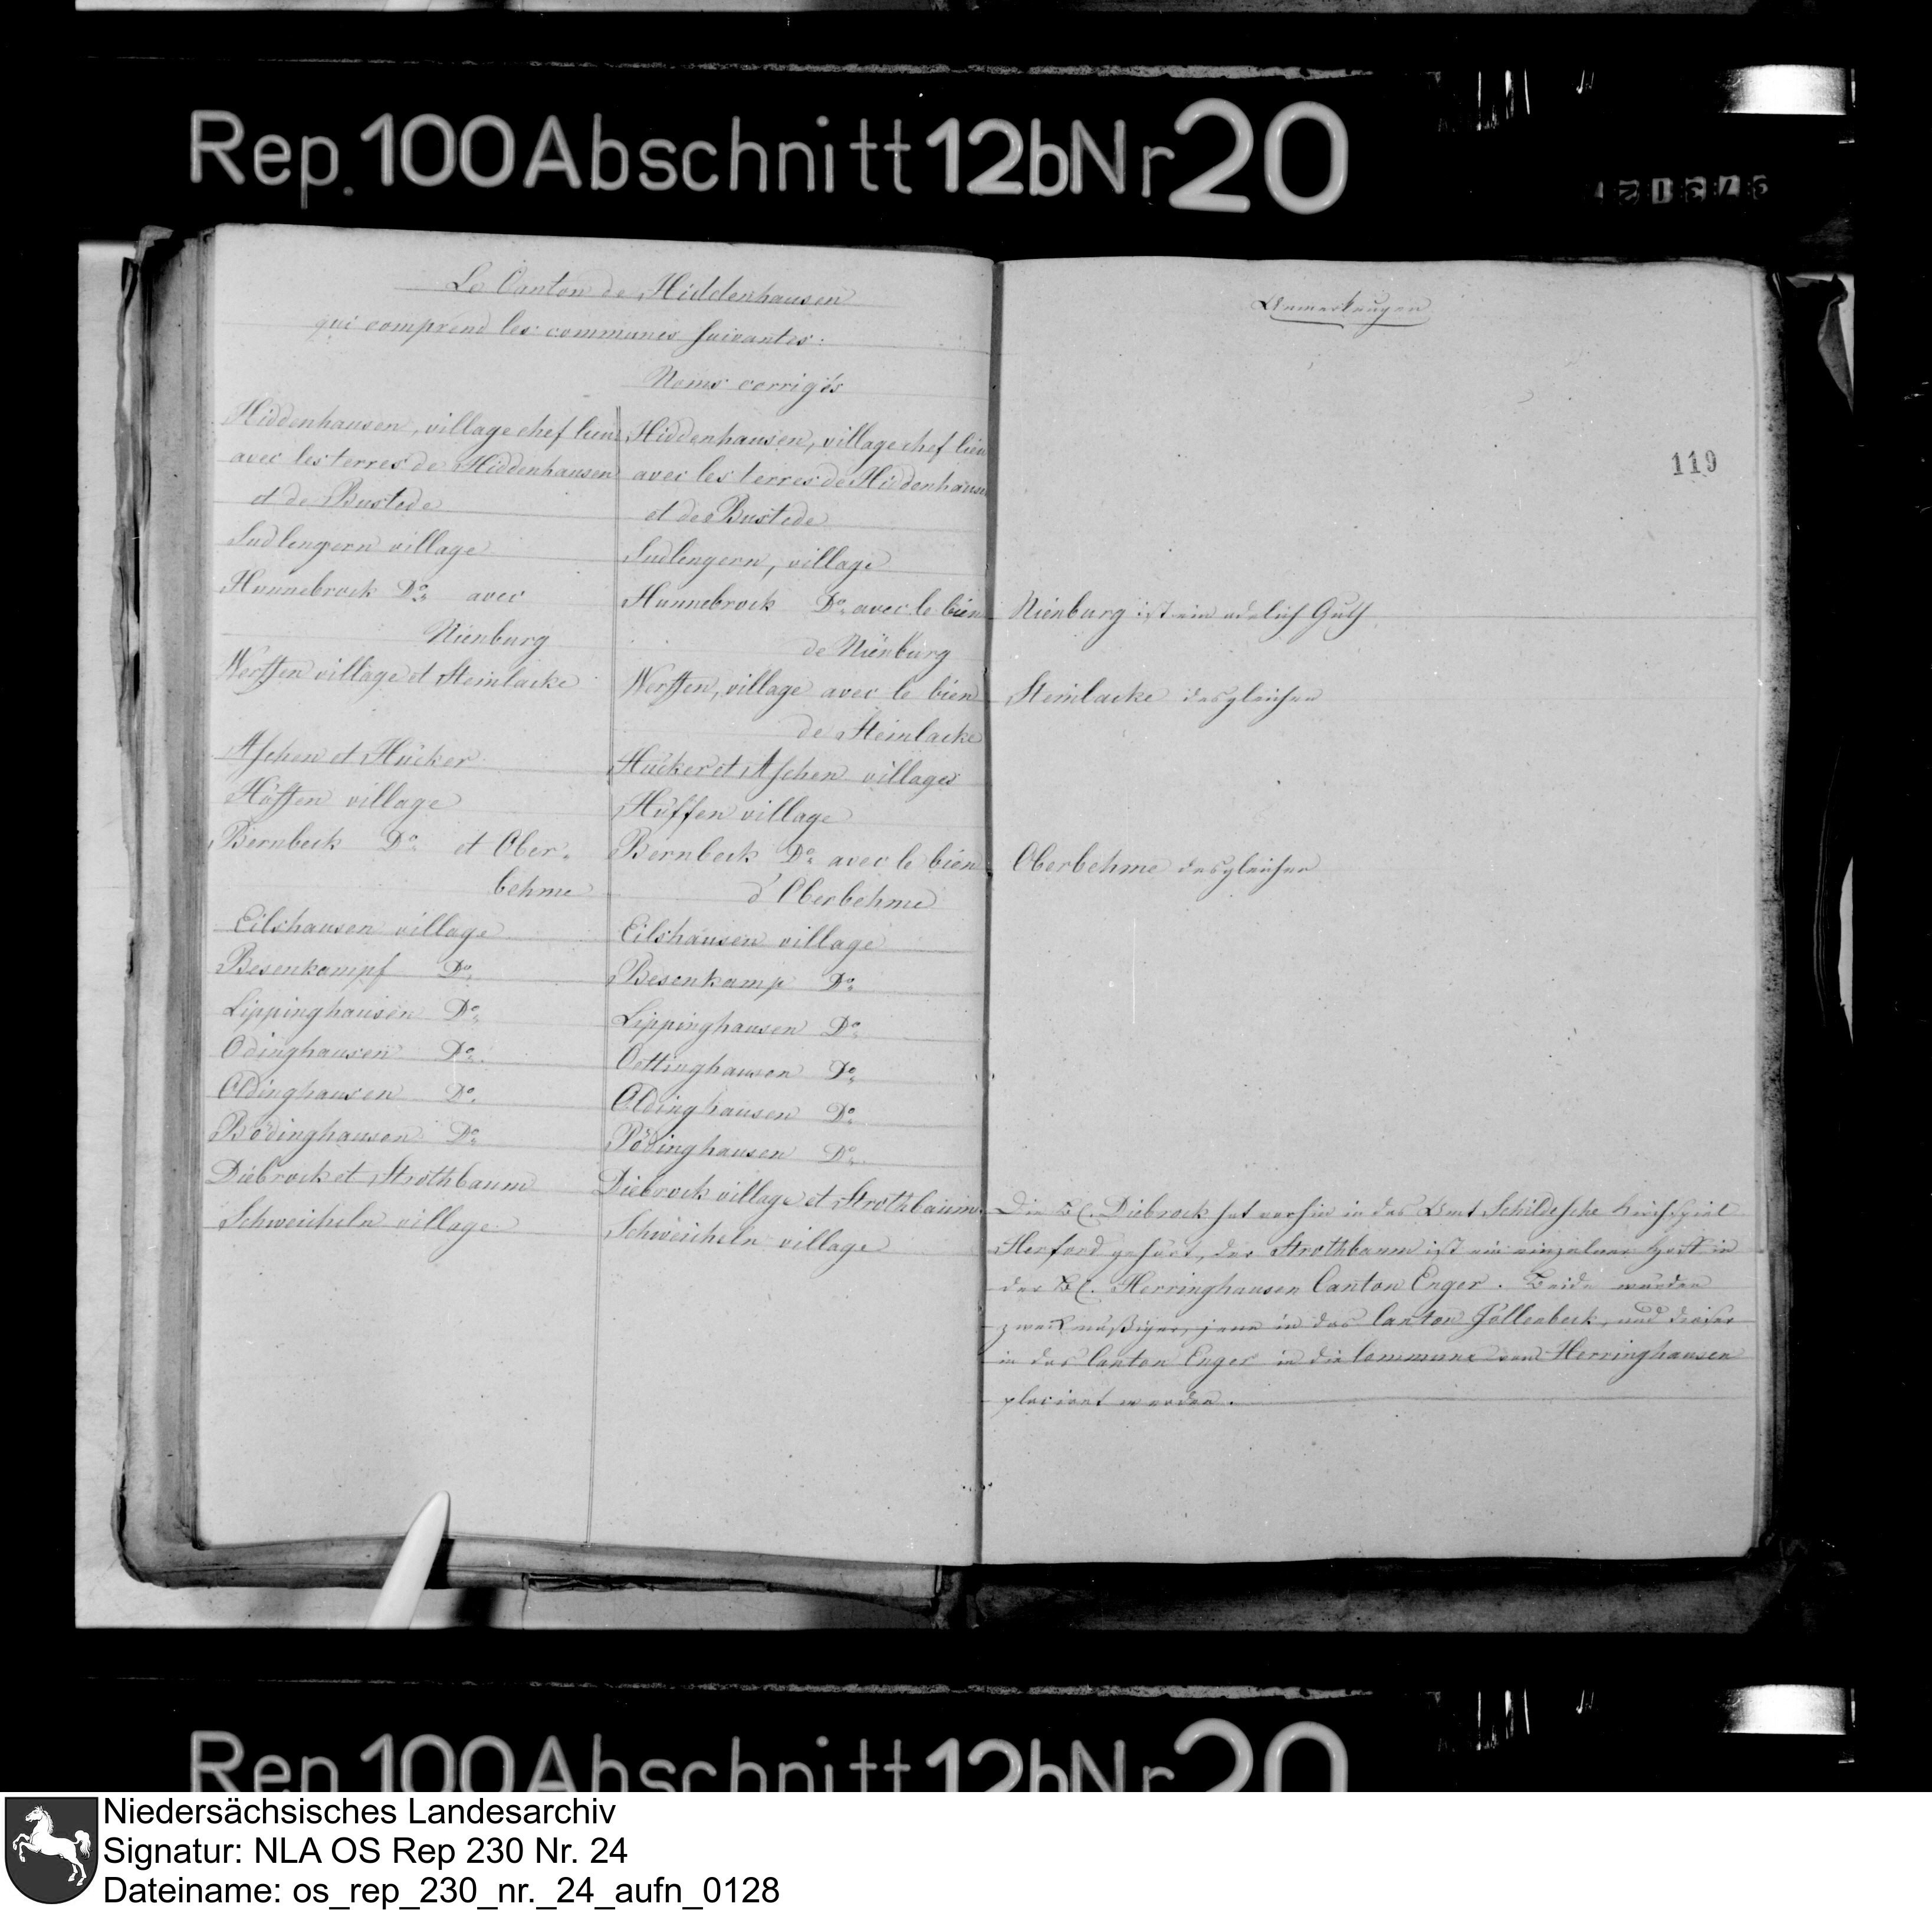 Rep. 100 Abschnitt 12b Nr 20
Le Canton de Hiddenhausen
qui comprend les communes suivantes:
Noms corrigés
Hiddenhausen, village chef lieu
avec les terres de Hiddenhausen
et de Bustede
Sudlengern village
Hunnebrock Do. avec
Nienburg
Werffen village et Steinlacke
Aschen et Hücker
Höffen village
Bernbeck Do. et Ober-
behme
Eilshausen village
Besenkampf Do.
Lippinghausen Do.
Odinghausen Do.
Oldinghausen Do.
Bödinghausen Do.
Diebrock et Strothbaum
Schweicheln village
Hiddenhausen, village chef lieu
avec les terres de Hiddenhausen
et de Bustede
Sudlengern, village
Hunnebrock Do. avec le bien
de Nienburg
Werffen, village avec le bien
de Steinlacke
Hücker et Aschen villages
Hüffen village
Bernbeck Do. avec le bien
d'Oberbehme
Eilshausen village
Besenkamp Do.
Lippinghausen Do.
Oettinghausen Do.
Oldinghausen Do.
Pödinghausen Do.
Diebrock village et Strothbaum
Schweicheln village
Anmerkungen
119
Nienburg ist ein adelich Guth
Steinlacke desgleichen
Oberbehme desgleichen
Die BC. Diebrock hat vorhin in das Amt Schildesche Kirchspiel
Herford gehört, der Strothbaum ist ein einzelner Hoff in
der BC. Herringhausen Canton Enger. Beide würden
zweckmäßiger, jene in das Canton Jöllenbeck, und dieser
in das Canton Enger in die Commune von Herringhausen
placirt werden.
Rep. 100 Abschnitt 12b Nr 20
Niedersächsisches Landesarchiv
Signatur: NLA OS Rep 230 Nr. 24
Dateiname: os_rep_230_nr._24_aufn_0128